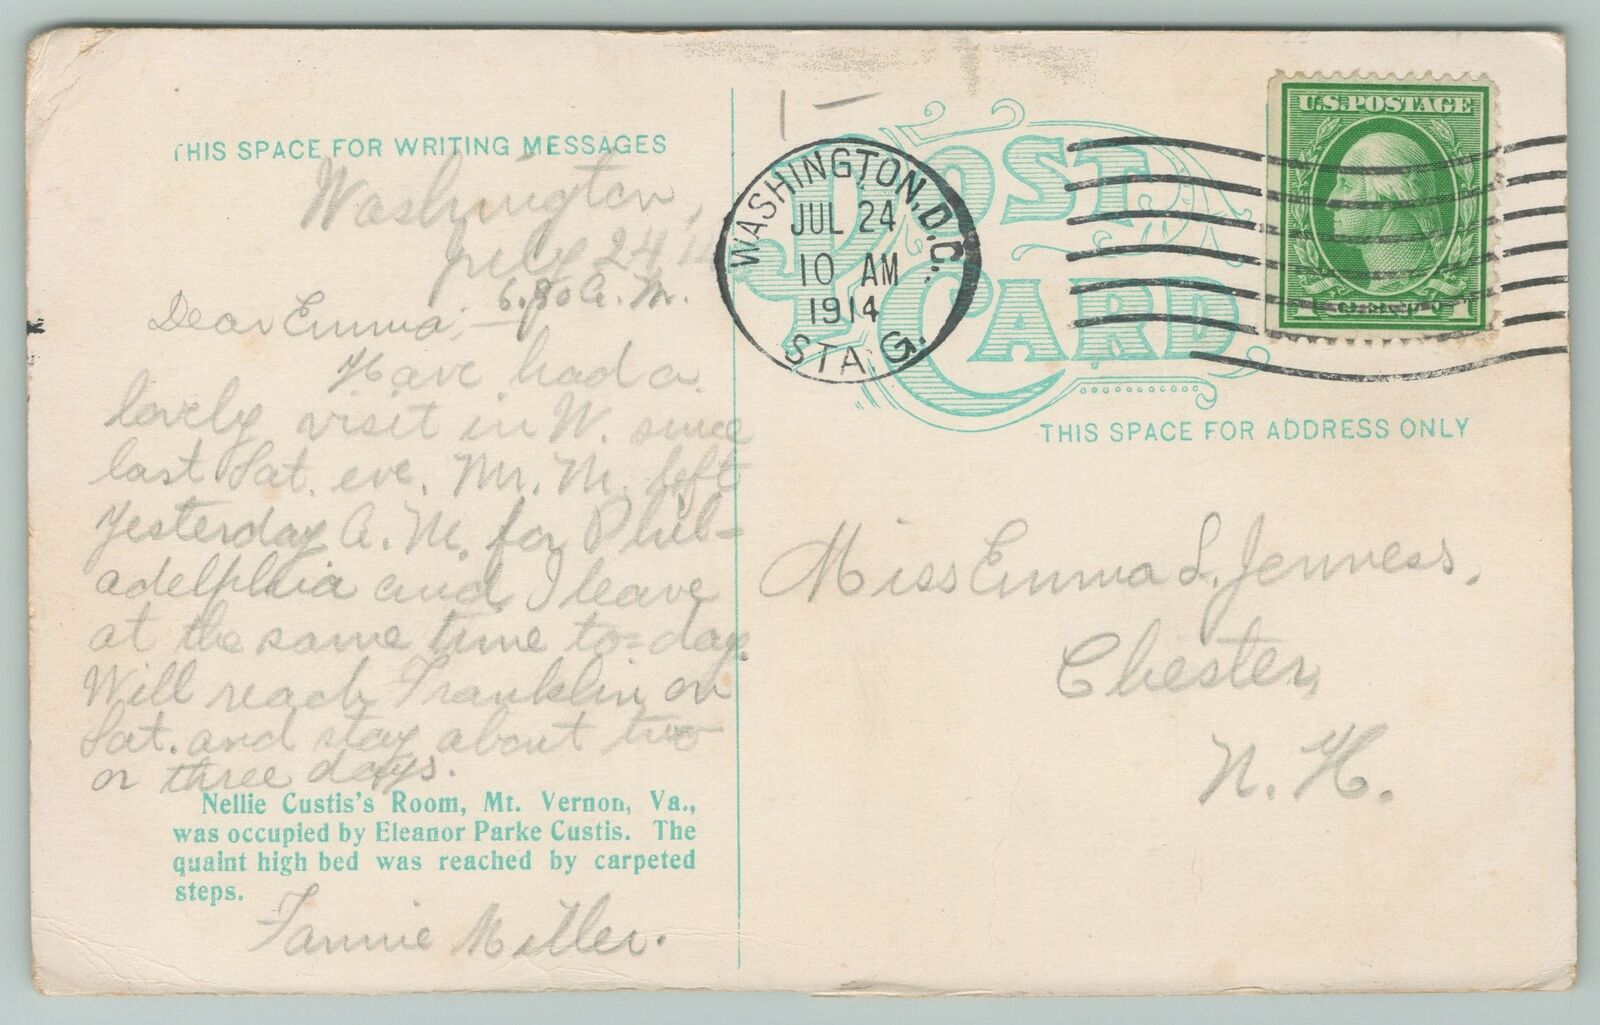 THIS SPACE FOR WRITING MESSAGES
Washington,
July 24
A.M.
Dear Emma;—
Have had a
lovely visit in W. since
last Sat. eve. Mr. M. left
yesterday A.M. for Phil-
adelphia and I leave
at the same time to-day.
Will reach Franklin on
Sat. and stay about two
or three days.
Nellie Custis's Room, Mt. Vernon, Va.,
was occupied by Eleanor Parke Custis. The
quaint high bed was reached by carpeted
steps.
Fannie Miller.
POST
CARD
WASHINGTON, D.C.
JUL 24
10 AM
1914
STA. G.
U.S. POSTAGE
1 1
THIS SPACE FOR ADDRESS ONLY
Miss Emma L. Jenness,
Chester,
N. H.